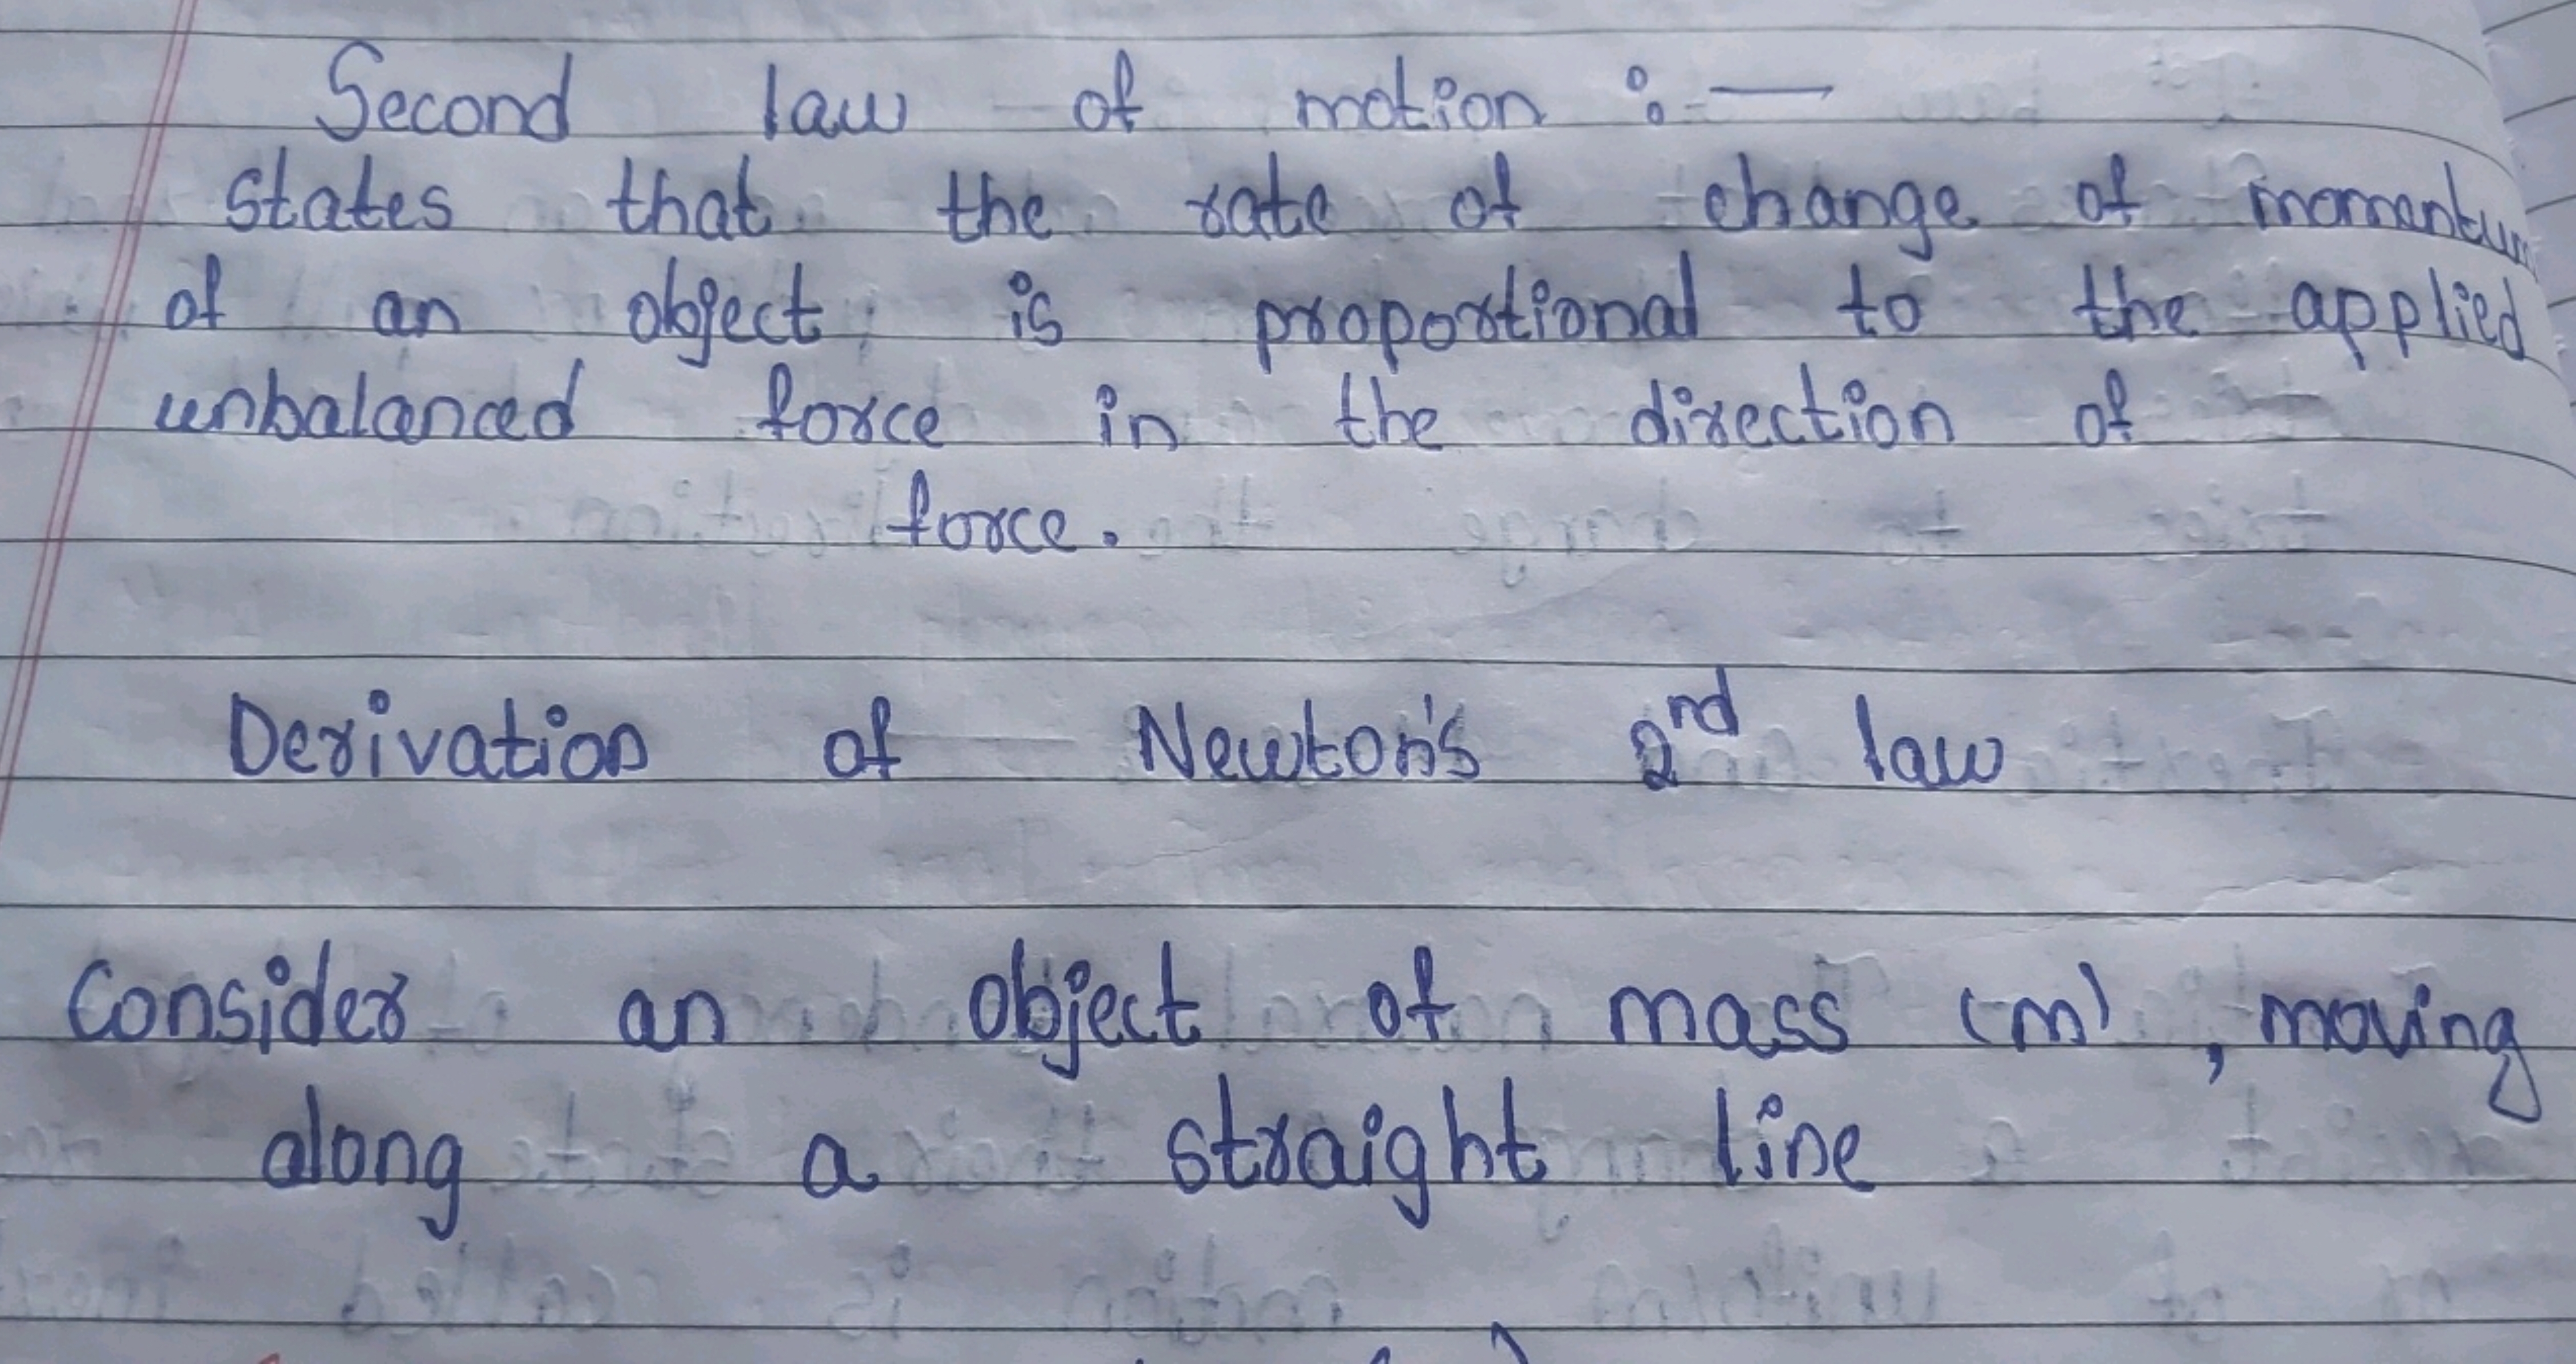 Second law of motion :-
states that the rate of change of momentum
of an object is proportional to the applied
unbalanced force in the direction of
force.
Derivation of Newton's 2nd law
Consider an object of mass (m), moving
along a straight line